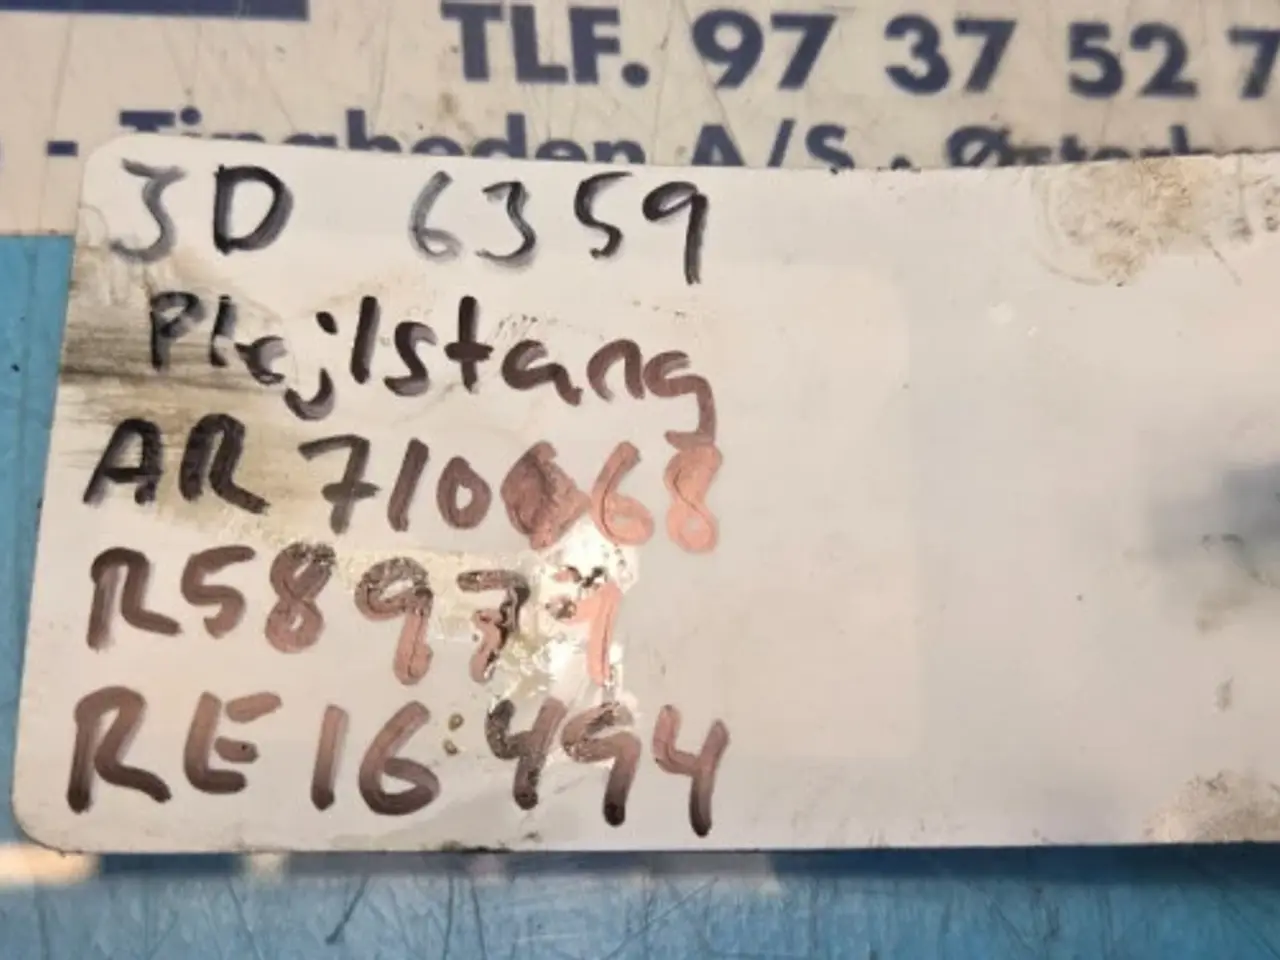 TLF. 97 37 52 7
- Tingheden A/S · Østerb
JD 6359
Plejlstang
AR 71068
R58971
RE16494